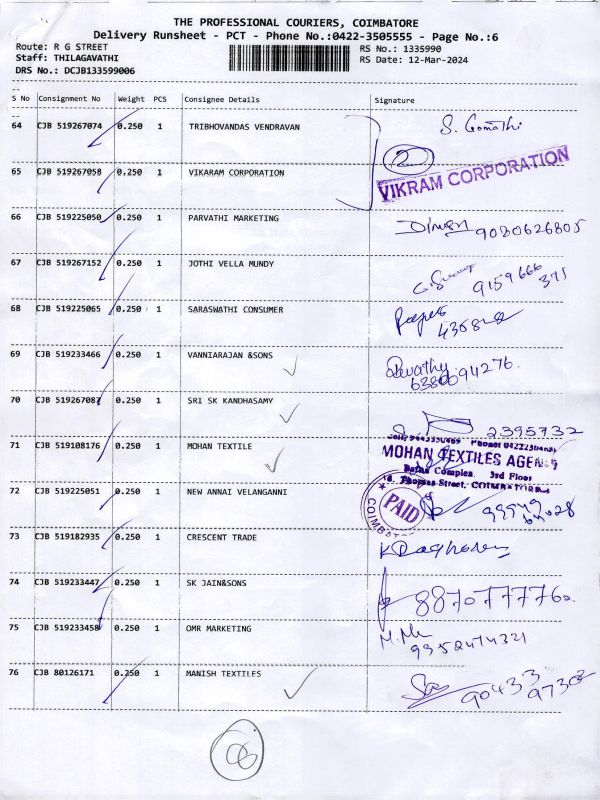 THE PROFESSIONAL COURIERS, COIMBATORE
Delivery Runsheet - PCT - Phone No.:0422-3505555 - Page No.:6
Route: R G STREET RS No.: 1335990
Staff: THILAGAVATHI RS Date: 12-Mar-2024
DRS No.: DCJB133599006
S No Consignment No Weight PCS Consignee Details Signature
64 CJB 519267074 0.250 1 TRIBHOVANDAS VENDRAVAN S. Gomathi
2
65 CJB 519267058 0.250 1 VIKARAM CORPORATION VIKRAM CORPORATION
66 CJB 519225050 0.250 1 PARVATHI MARKETING 9080626805
67 CJB 519267152 0.250 1 JOTHI VELLA MUNDY 9159666
371
68 CJB 519225065 0.250 1 SARASWATHI CONSUMER
69 CJB 519233466 0.250 1 VANNIARAJAN &SONS
70 CJB 519267087 0.250 1 SRI SK KANDHASAMY 2395732
71 CJB 519108176 0.250 1 MOHAN TEXTILE MOHAN TEXTILES AGENS
3rd Floor
Thomas Street, COIMBATORE
PAID
72 CJB 519225051 0.250 1 NEW ANNAI VELANGANNI
73 CJB 519182935 0.250 1 CRESCENT TRADE
74 CJB 519233447 0.250 1 SK JAIN&SONS
75 CJB 519233458 0.250 1 OMR MARKETING
9352474321
76 CJB 80126171 0.250 1 MANISH TEXTILES 90433
06